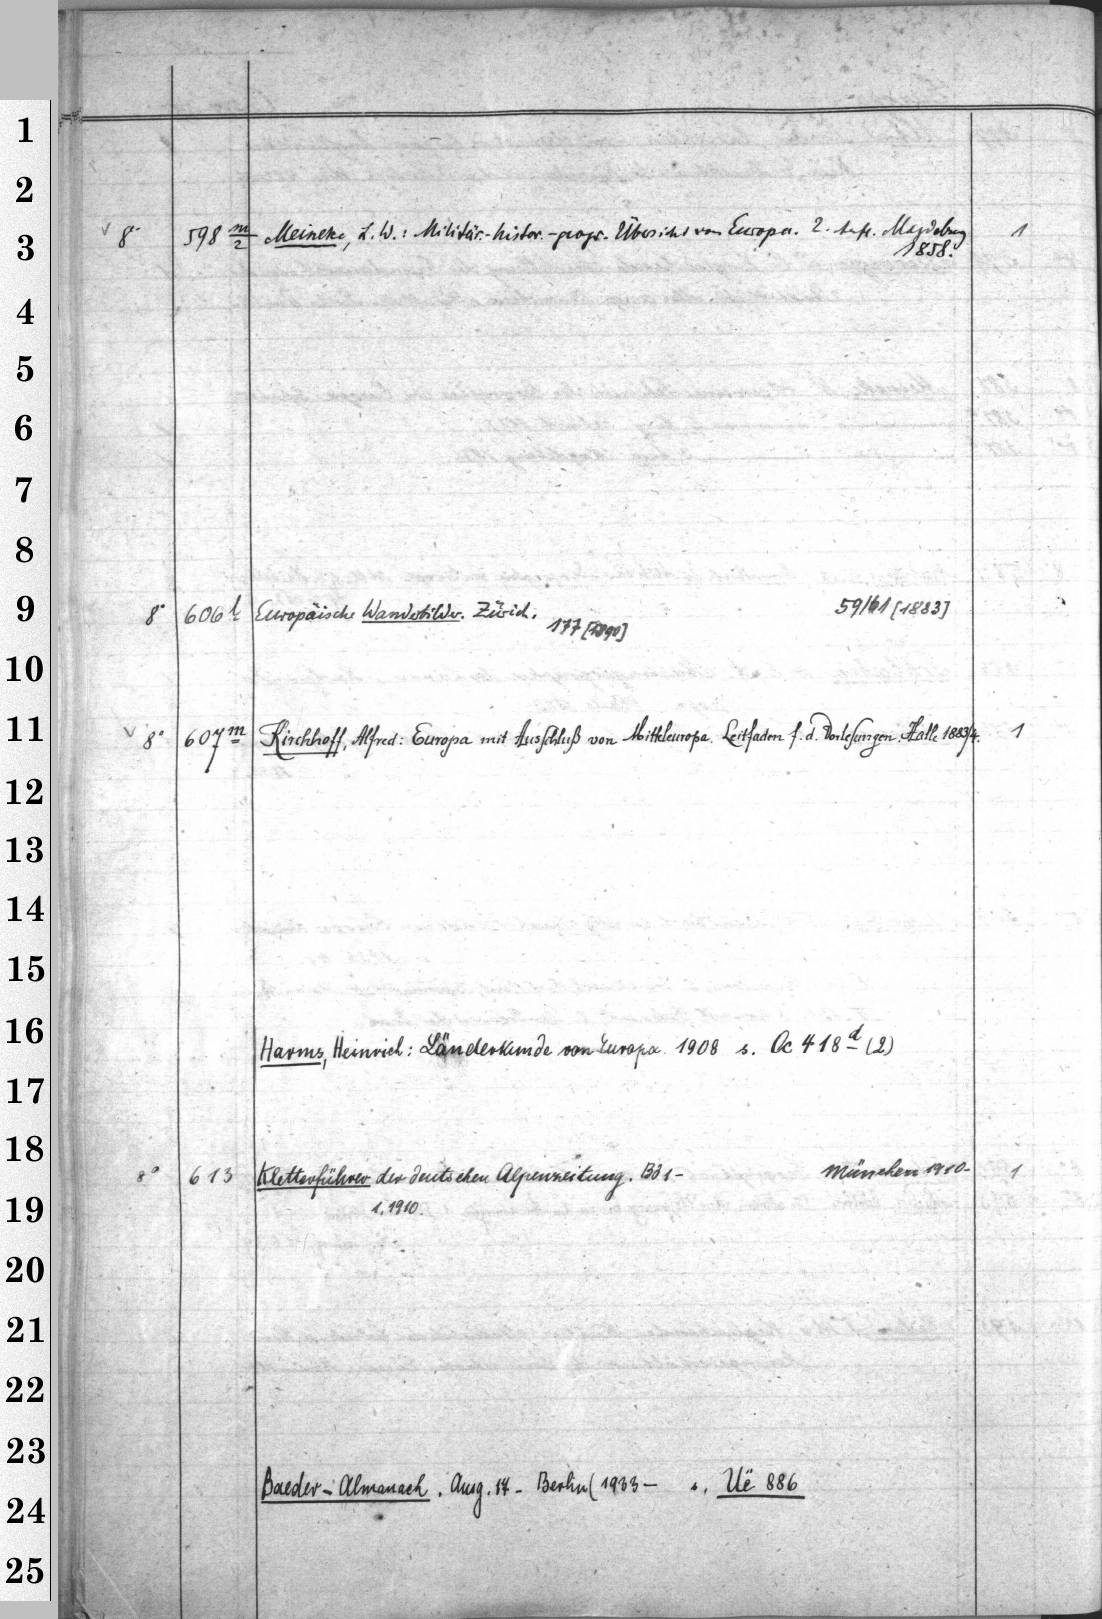 1
2
3
4
5
6
7
8
9
10
11
12
13
14
15
16
17
18
19
20
21
22
23
24
25
v 8° 598 m/2 Meineke, L. W.: Militär.-histor.-geogr. Übersicht von Europa. 2. Aufl. Magdeburg 1
1858.
8° 606 l Europäische Wanderbilder. Zürich. 59/61 [1883]
177 [1890]
v 8° 607 m Kirchhoff, Alfred: Europa mit Ausschluß von Mitteleuropa. Leitfaden f. d. Vorlesungen. Halle 1883/4. 1
Harms, Heinrich: Länderkunde von Europa. 1908 s. Oc 418 d (2)
8° 613 Kletterführer der deutschen Alpenzeitung. Bd 1- München 1910- 1
1. 1910.
Baeder-Almanach. Ausg. 14 - Berlin (1933- s. Uë 886